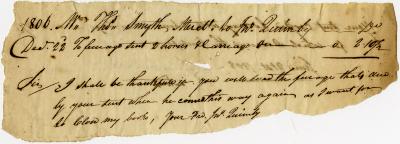 1806. Mr. Thos Smyth, Mercht. to Jno. Quinby Dr
Decr. 22 To feriage sent 2 horses & Carriage over 0. 2
Sir I shall be thankful if you will send the feriage thats due
by your sert when he comes this way again as I want for
to Close my books, your Frd, Jno. Quinby